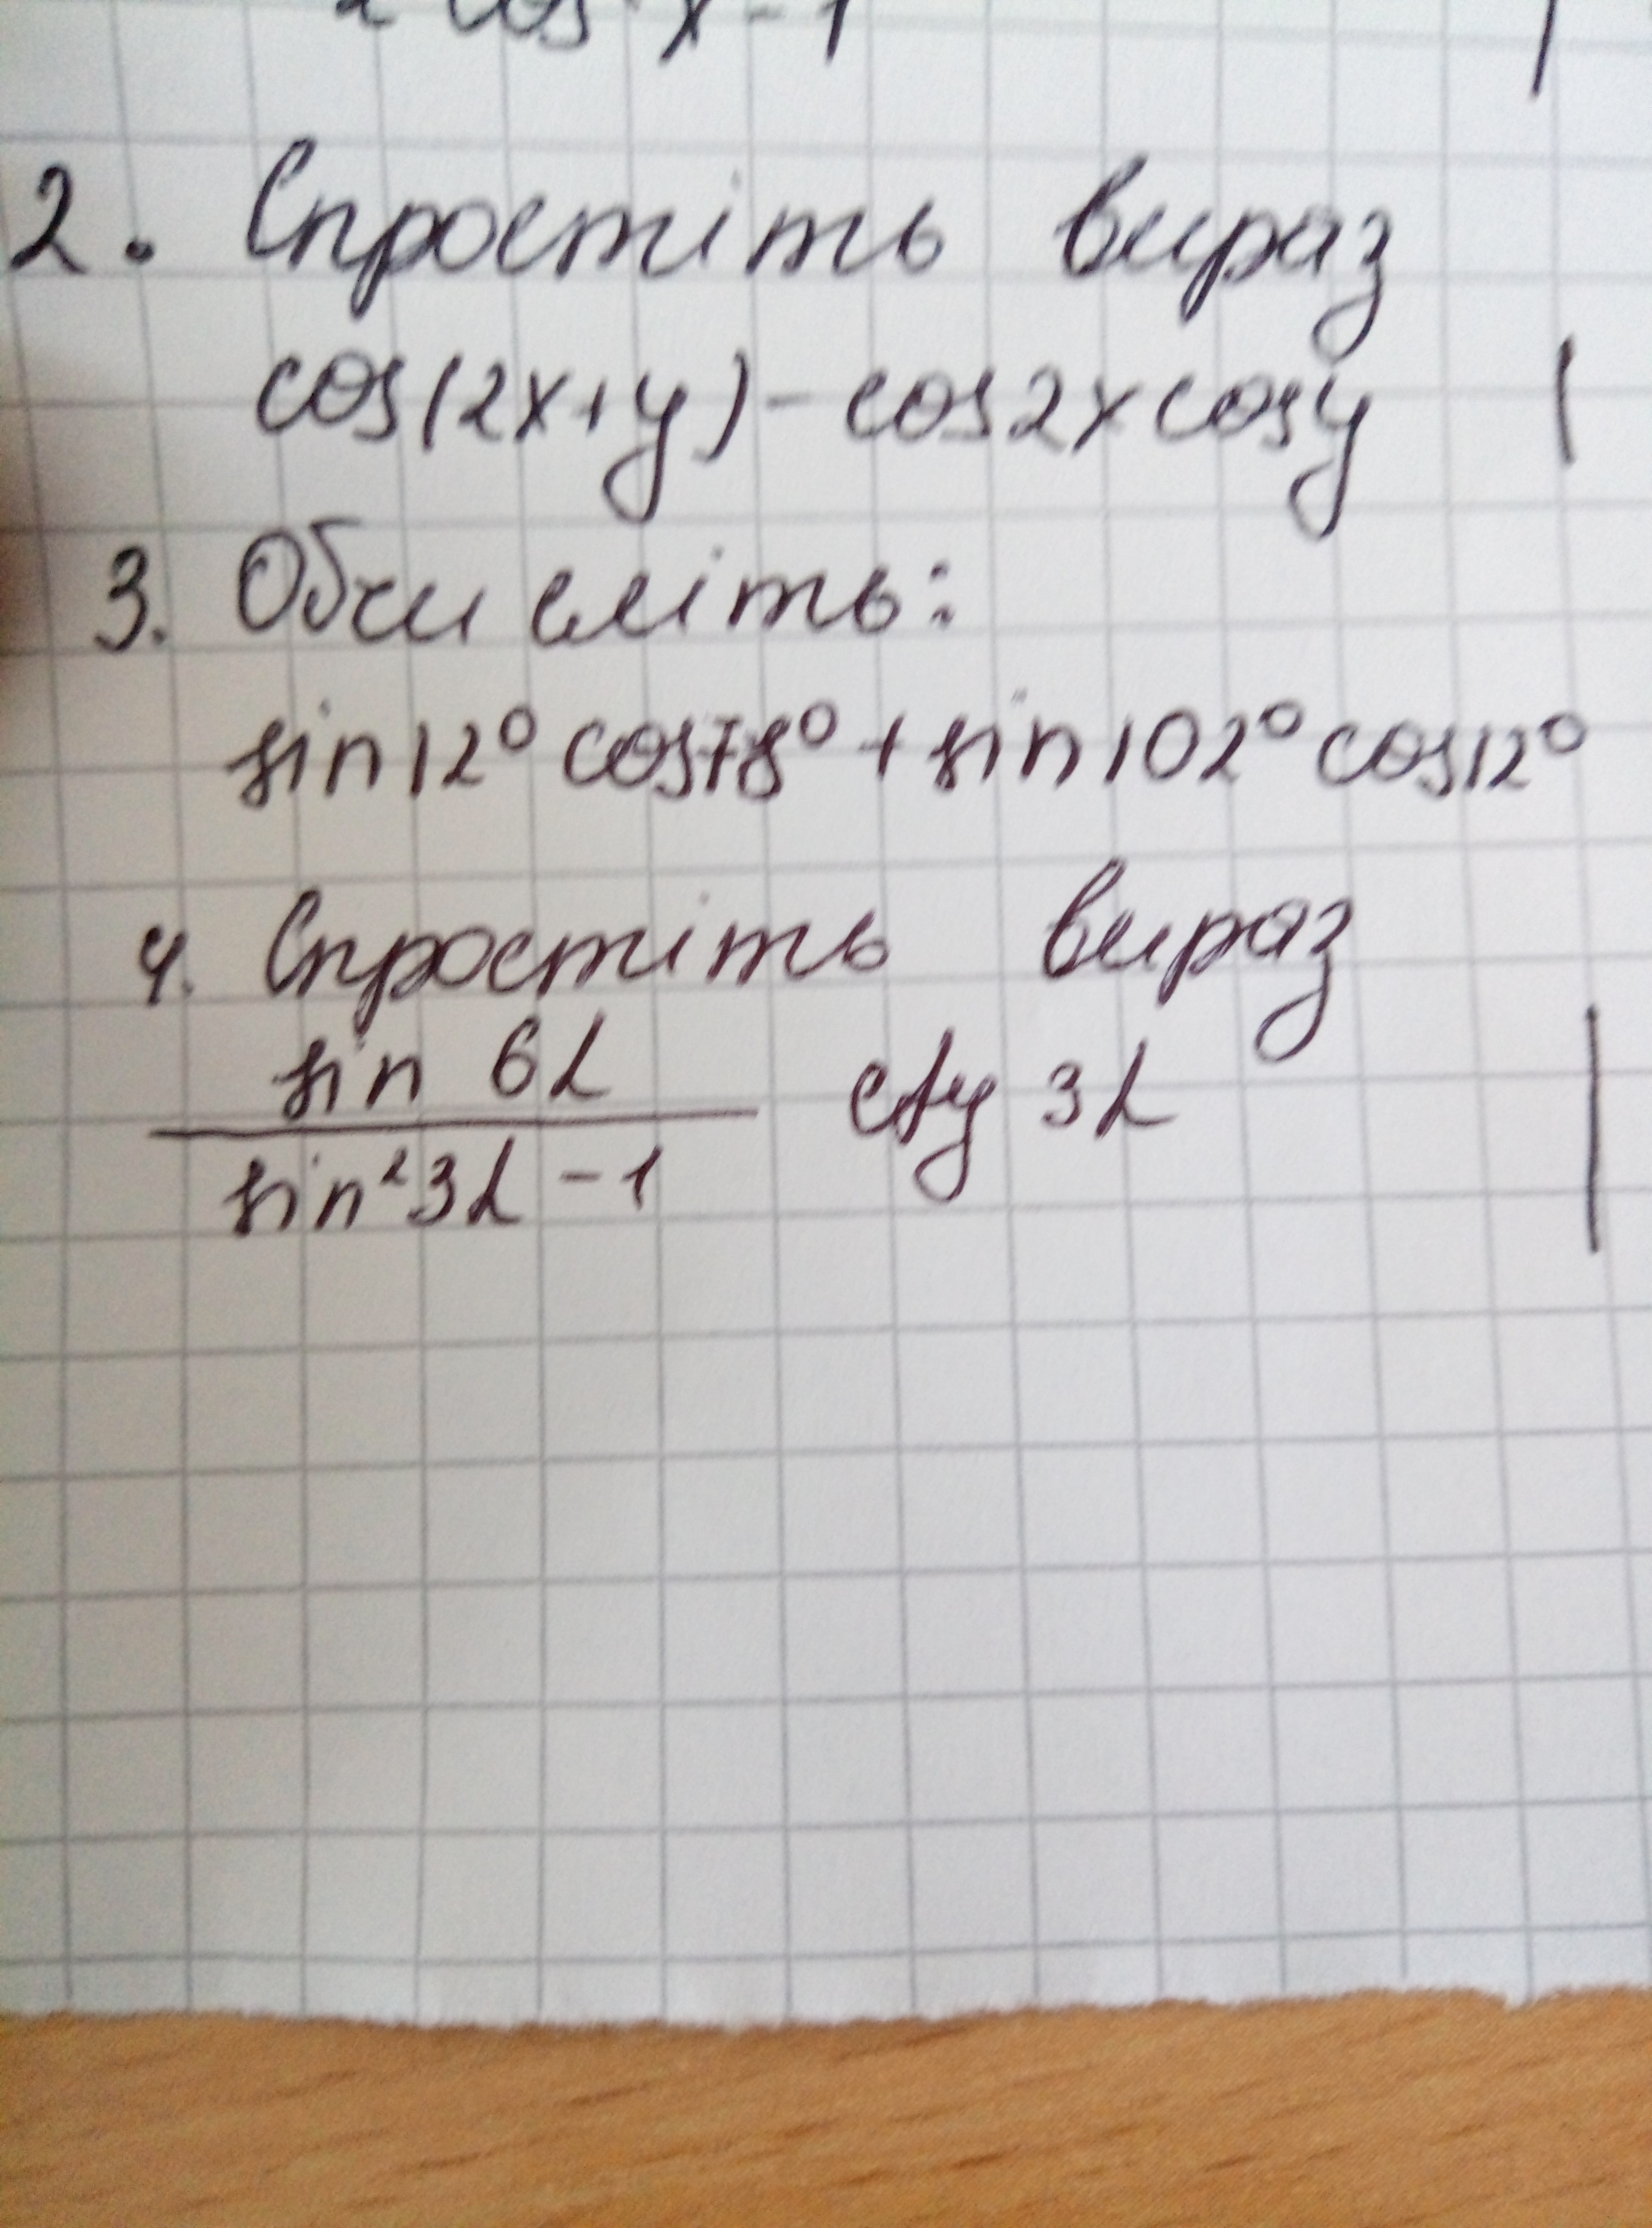 2 cos² x - 1
2. Спростіть вираз
cos(2x+y) - cos2x cosy
3. Обчисліть:
sin12° cos78° + sin102° cos12°
4. Спростіть вираз
sin 6α
ctg 3α
sin²3α - 1